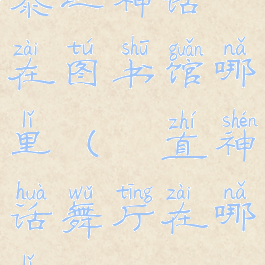 神话
zài tú shū guǎn nǎ
在图书馆哪
lǐ zhí shén
里( 直神
huà wǔ tīng zài nǎ
话舞厅在哪
lǐ